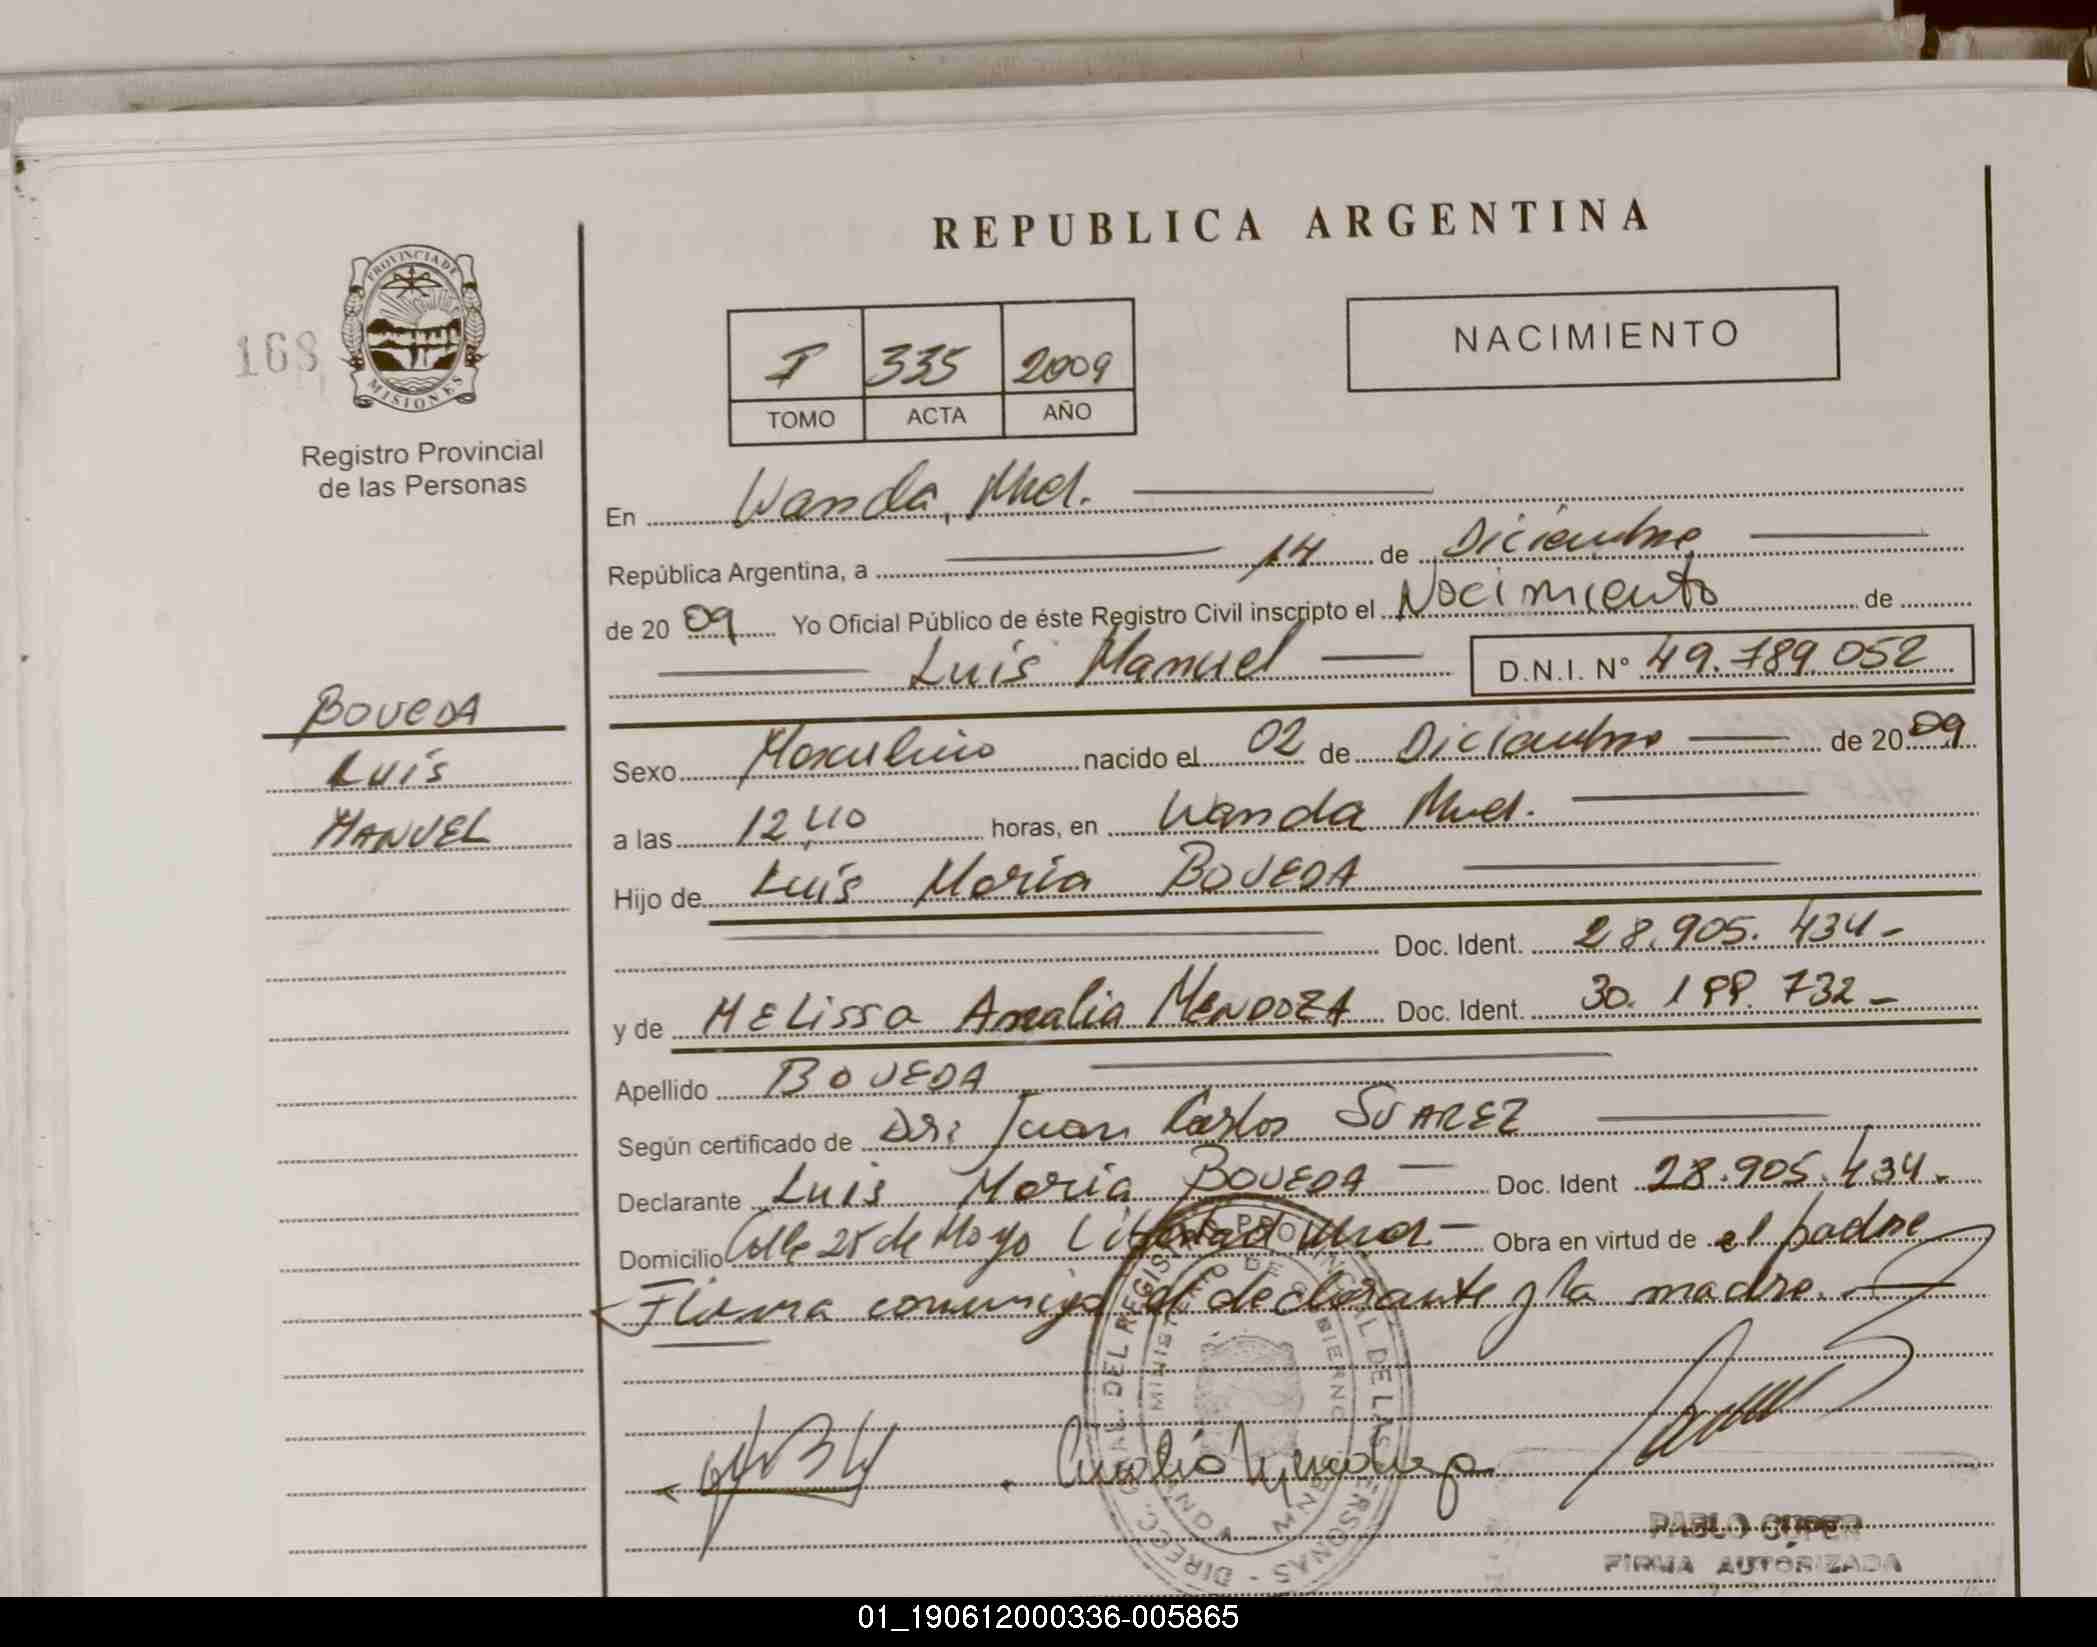 REPUBLICA ARGENTINA
PROVINCIA DE
MISIONES
168
NACIMIENTO
I 335 2009
TOMO ACTA AÑO
Registro Provincial
de las Personas
En Wanda, Mnes.
República Argentina, a 14 de Diciembre
de 20 09 Yo Oficial Público de éste Registro Civil inscripto el Nacimiento de
Luis Manuel D.N.I. N° 49.789.052
BOVEDA
Luis
MANUEL
Sexo Masculino nacido el 02 de Diciembre de 20 09
a las 12,40 horas, en Wanda Mnes.
Hijo de Luis Maria BOVEDA
Doc. Ident. 28.905.434-
y de MELissa Amalia MENDOZA Doc. Ident. 30.199.732-
Apellido BOVEDA
Según certificado de Dr: Juan Carlos SUAREZ
Declarante Luis Maria BOVEDA Doc. Ident 28.905.434-
Domicilio Calle 25 de Mayo Libertad Mnes.- Obra en virtud de el padre
Firma conmigo el declarante y la madre.
DIRECC. GRAL. DEL REGISTRO PROVINCIAL DE LAS PERSONAS
MINISTERIO DE GOBIERNO
WANDA
PABLO
FIRMA AUTORIZADA
01_190612000336-005865